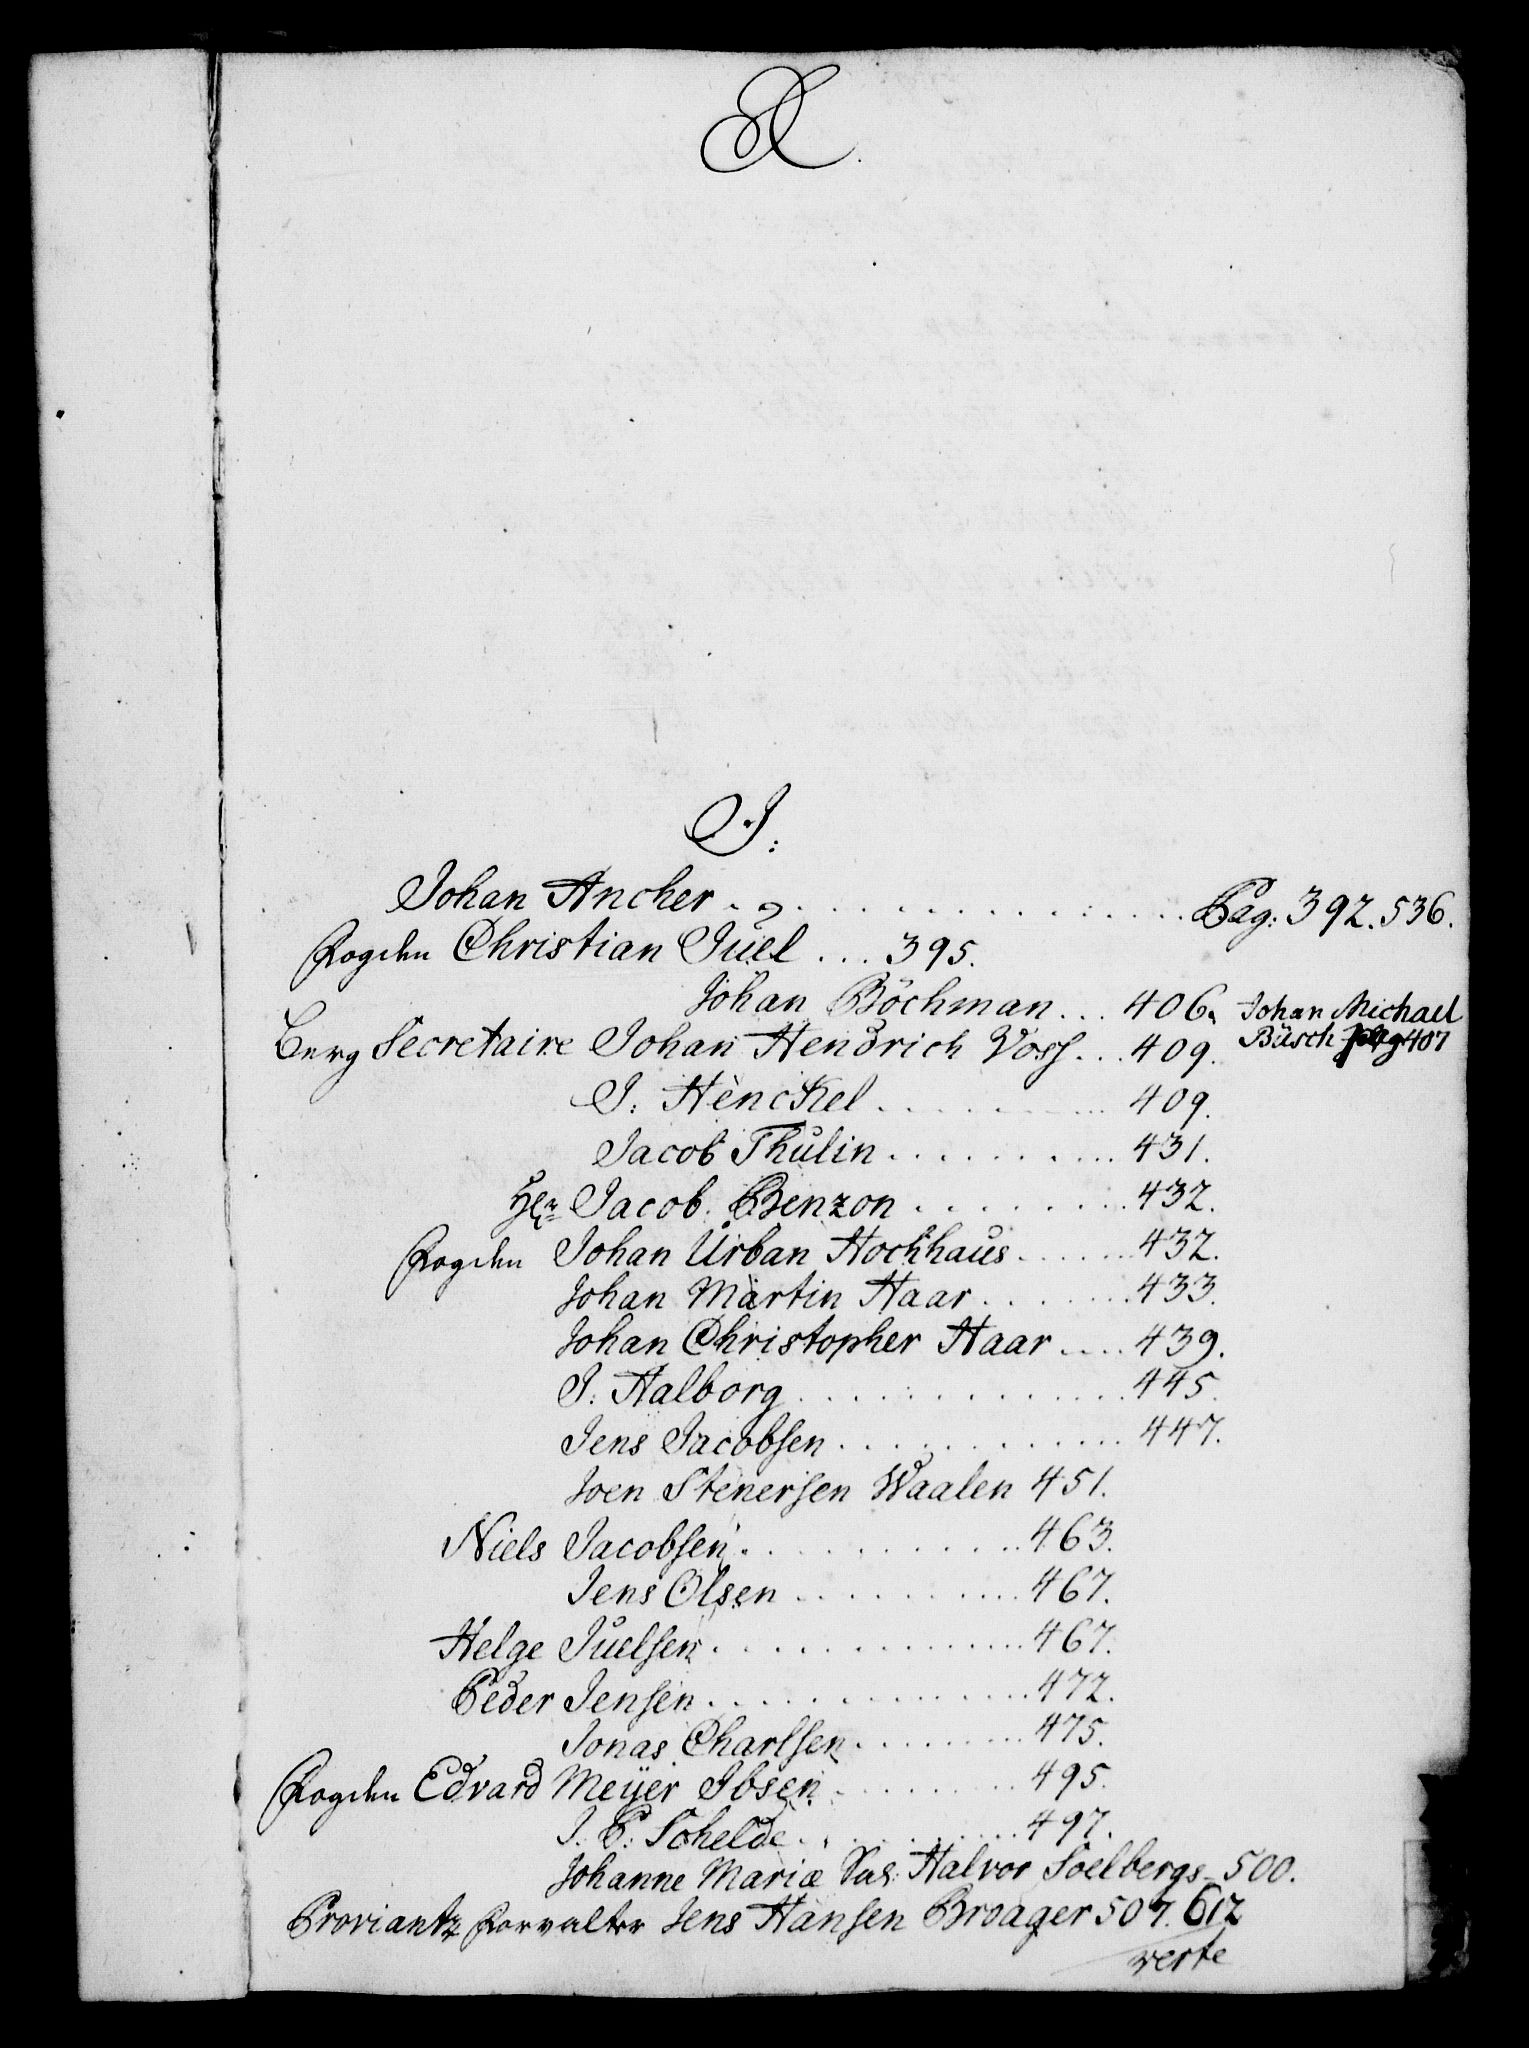 X.
J:
Johan Ancher . . . . . Pag: 392. 536.
Fogden Christian Juel . . . 395.
Johan Böchman . . . 406. Johan Michael
Berg Secretaire Johan Hendrich Voss . . . 409. Büsch pag 407
J: Henckel . . . . . 409.
Jacob Thulin . . . . . 431.
Hr Jacob Benzon . . . . . 432.
Fogden Johan Urban Hochhaus . . . . . 432.
Johan Martin Haar . . . . . 433.
Johan Christopher Haar . . . . 439.
J: Aalborg . . . . . 445.
Jens Jacobsen . . . . . 447.
Joen Stenersen Waalen 451.
Niels Jacobsen . . . . . 463.
Jens Olsen . . . . . 467.
Helge Juelsen . . . . . 467.
Peder Jensen . . . . . 472.
Jonas Charlsen . . . . . 475.
Fogden Edvard Meÿer Ibsen . . . . . 495.
J. P: Schelde . . . . . 497.
Johanne Mariæ Sal: Halvor Soelbergs - 500.
Proviantz Forvalter Jens Hansen Broager 507. 612
verte